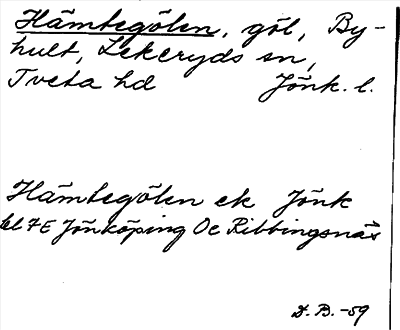 Hämtegölen, göl, By-
hult, Lekeryds sn,
Tveta hd Jönk. l.
Hämtegölen ek Jönk
bl 7E Jönköping Oc Ribbingsnäs
D. B. -59